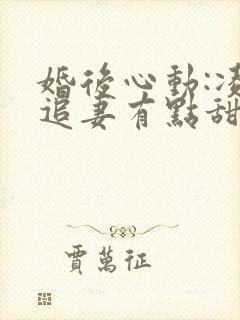 婚後心動:凌
追妻有點甜
賈萬征